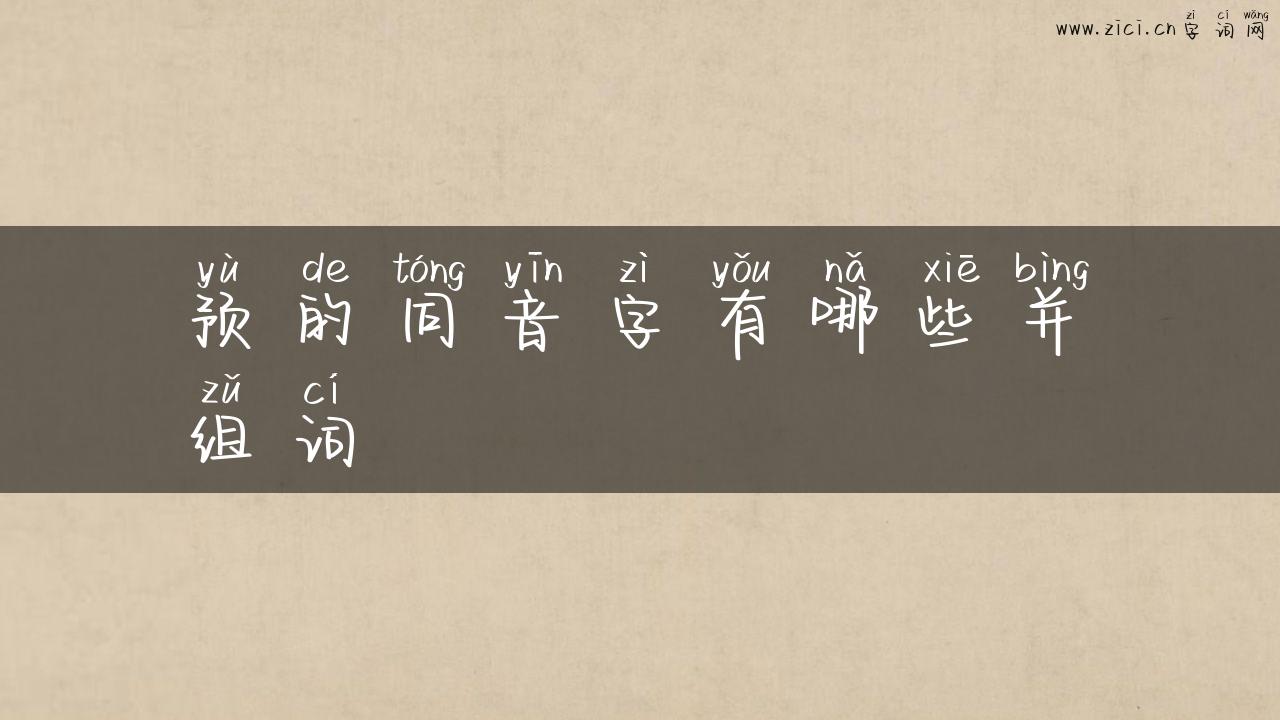 zì cí wǎng
www.zici.cn 字词网
yù de tóng yīn zì yǒu nǎ xiē bìng
预的同音字有哪些并
zǔ cí
组词